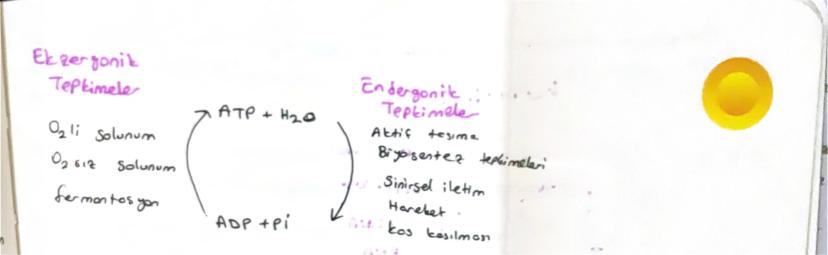 Ekzergonik
Tepkimeler
O2 li solunum
O2 siz solunum
fermantasyon
ATP + H2O
ADP + Pi
Endergonik
Tepkimeler
Aktif taşıma
Biyosentez tepkimeleri
Sinirsel iletim
Hareket
kas kasılması